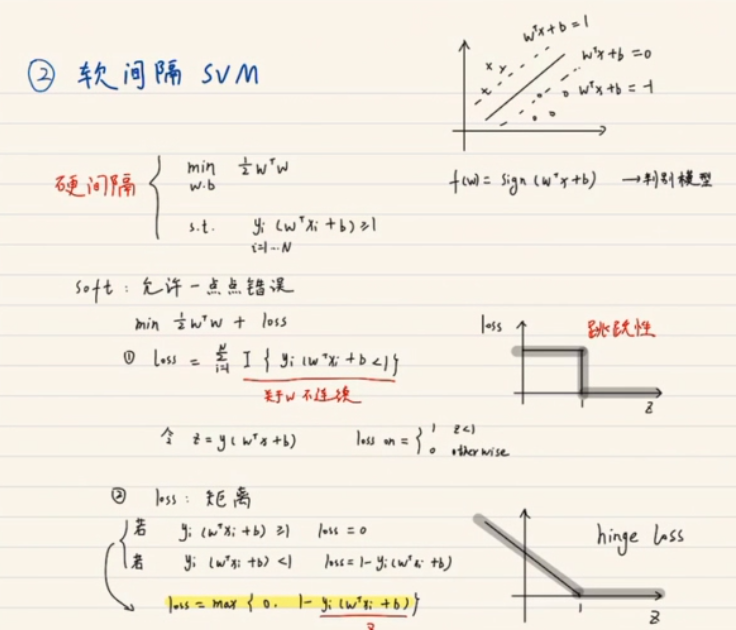 ② 软间隔 SVM
wᵀx+b=1
wᵀx+b=0
wᵀx+b=-1
硬间隔
min ½wᵀw
w.b
s.t. yi (wᵀxi+b)≥1
i=1…N
f(w)= sign (wᵀx+b) →判别模型
soft: 允许一点点错误
min ½wᵀw + loss
① loss = Σ I { yi (wᵀxi+b<1}
N
i=1
关于w不连续
loss
跳跃性
1
z
令 z=y(wᵀx+b) loss on = { 1 z<1
0 otherwise
② loss: 距离
若 yi (wᵀxi+b) ≥1 loss=0
若 yi (wᵀxi+b) <1 loss=1-yi(wᵀxi+b)
loss = max { 0. 1- yi (wᵀxi+b)}
z
hinge loss
1
z